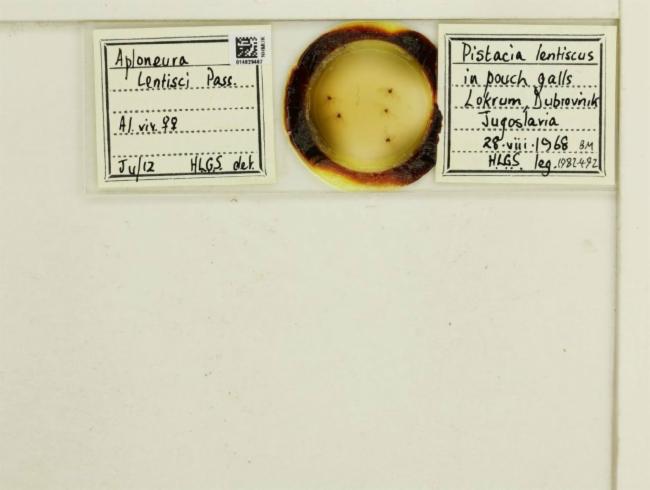 Aploneura
Lentisci Pass.
Al. viv. ♀♀
Ju/12 HLGS. det.
Pistacia lentiscus
in pouch galls
Lokrum, Dubrovnik
Jugoslavia
28.viii.1968 BM
HLGS. leg. 1982-492